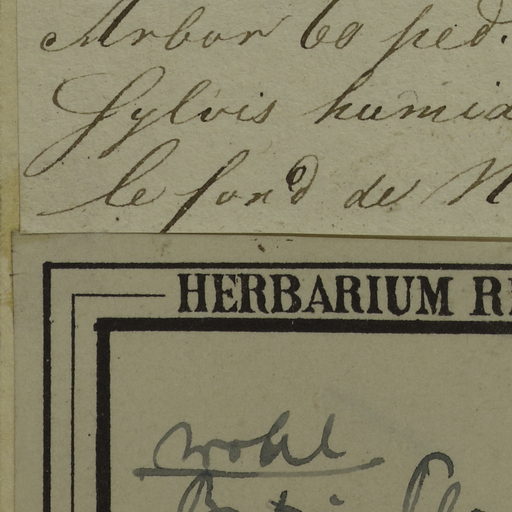 Arbor 60 ped.
Sylvis humid
le fond de N
HERBARIUM R
wohl